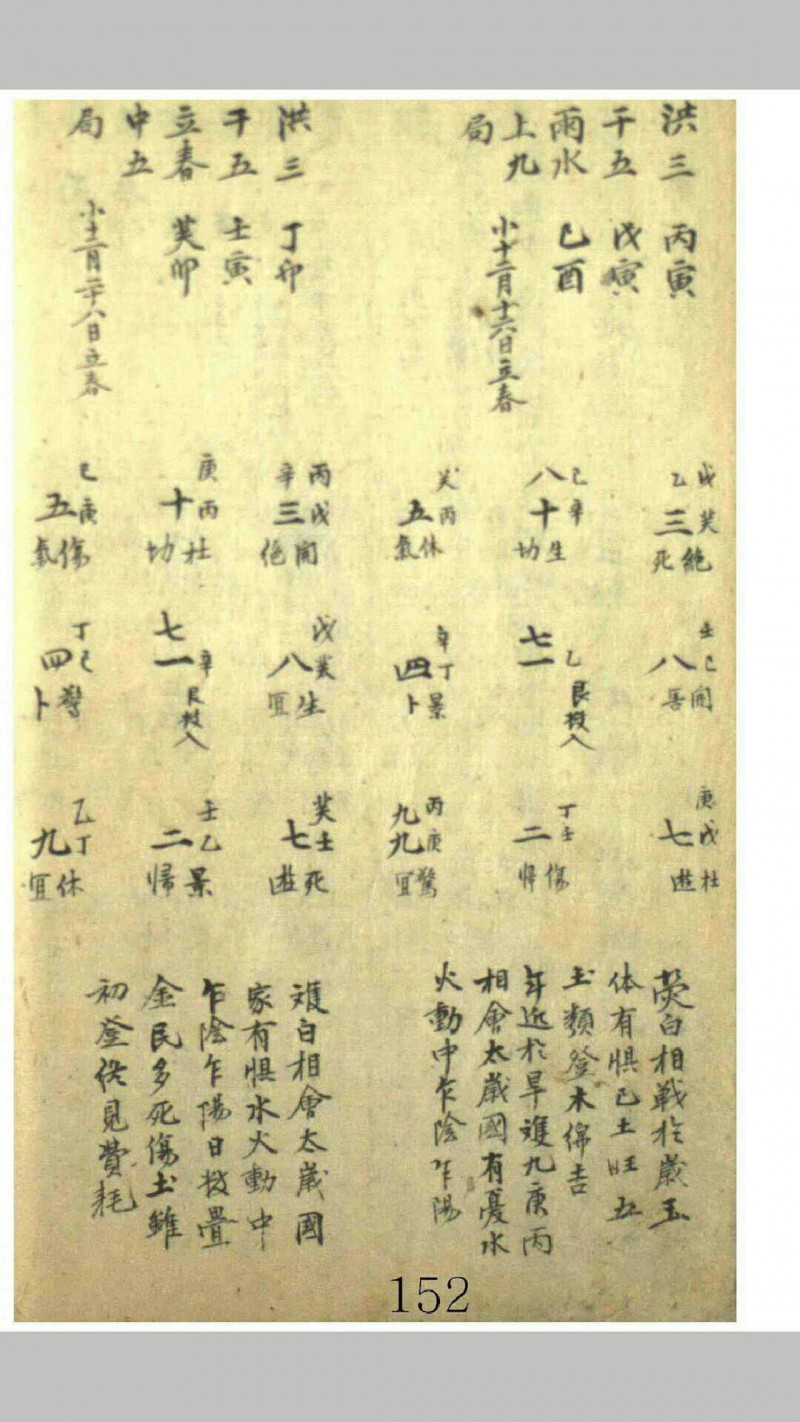 洪三
干五
雨水
上九
局
丙寅
戊寅
己酉
小十二月十六日立春
戊癸
乙三
死絶
己辛
八十
切生
癸丙
五
氣休
壬己
八
害開
乙
七一
艮投入
辛丁
四景
卜
庚戊
七杜
遊
丁壬
二傷
歸
丙庚
九九
宜驚
熒白相戰於歲玉
体有懼已土旺五
土類登木綿吉
年近於旱雙九庚丙
相會太歲國有憂水
火動中乍陰乍陽
洪三
干五
立春
中五
局
丁卯
壬寅
癸卯
小十二月二十八日立春
丙戊
辛三
絶開
庚丙
十
切杜
己庚
五
氣傷
戊癸
八
宜生
七一
辛
艮投入
丁己
四
卜驚
癸壬
七
遊死
壬乙
二
歸景
乙丁
九
宜休
雙白相會太歲國
家有懼水火動中
乍陰乍陽日投疊
金民多死傷土雖
初登終見費耗
152